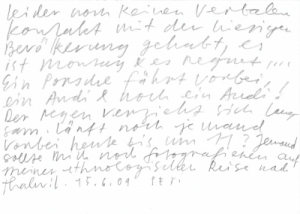 leider noch keinen verbalen
Kontakt mit der hiesigen
Bevölkerung gehabt, es
ist Montag & es regnet...
Ein Porsche fährt vorbei,
ein Audi & noch ein Audi!
Der Regen verzieht sich lang
sam. Läuft noch jemand
vorbei heute bis um 11? Jemand
sollte mich noch fotografieren auf
meiner ethnologischen Reise nach
Thalwil. 15.6.09